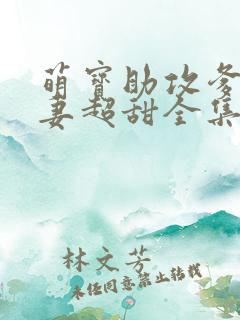 萌宝助攻爹
妻超甜全集
林文芳
未经同意禁止转载